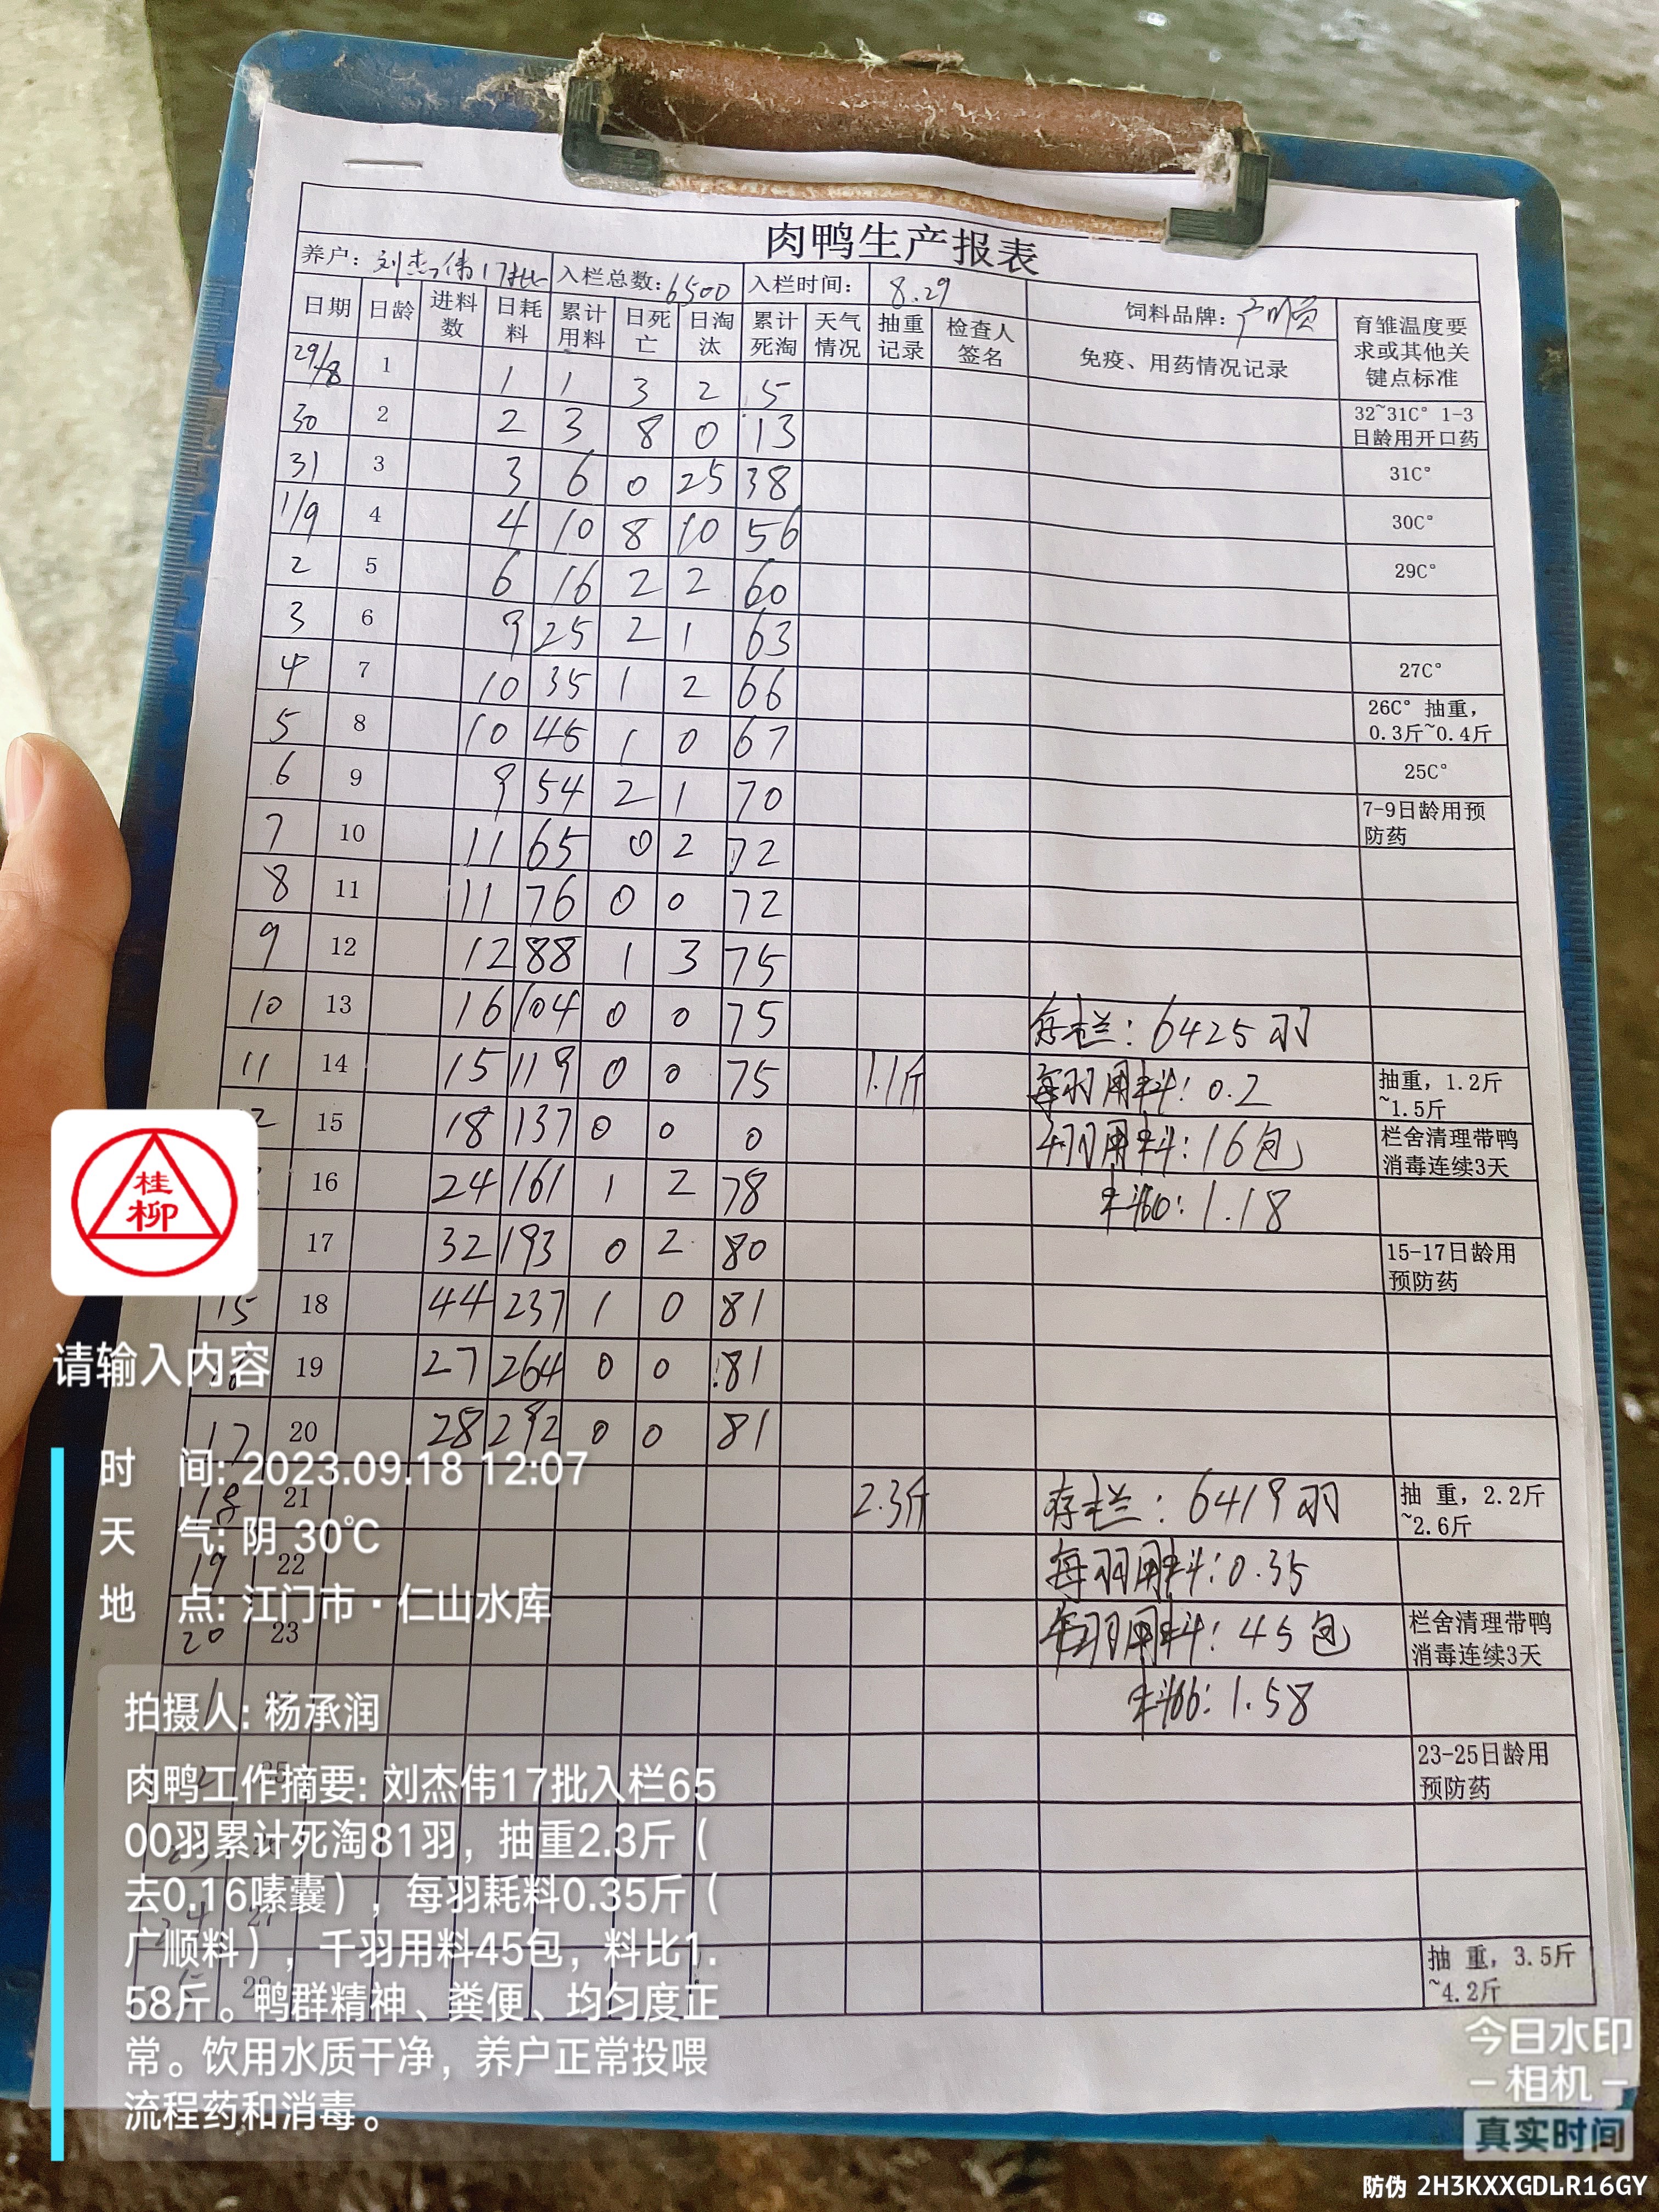 肉鸭生产报表
养户：刘杰伟17批 入栏总数：6500 入栏时间： 8.29 饲料品牌：广顺 育雏温度要求或其他关键点标准
日期 日龄 进料数 日耗料 累计用料 日死亡 日淘汰 累计死淘 天气情况 抽重记录 检查人签名 免疫、用药情况记录
29/8 1 1 1 3 2 5
30 2 2 3 8 0 13 32~31C° 1-3日龄用开口药
31 3 3 6 0 25 38 31C°
1/9 4 4 10 8 10 56 30C°
2 5 6 16 2 2 60 29C°
3 6 9 25 2 1 63
4 7 10 35 1 2 66 27C°
5 8 10 45 1 0 67 26C° 抽重，0.3斤~0.4斤
6 9 9 54 2 1 70 25C°
7 10 11 65 0 2 72 7-9日龄用预防药
8 11 11 76 0 0 72
9 12 12 88 1 3 75
10 13 16 104 0 0 75 存栏：6425羽
11 14 15 119 0 0 75 1.1斤 每羽用料：0.2 抽重，1.2斤~1.5斤
2 15 18 137 0 0 0 千羽用料：16包 栏舍清理带鸭消毒连续3天
16 24 161 1 2 78 料比：1.18
17 32 193 0 2 80 15-17日龄用预防药
15 18 44 237 1 0 81
19 27 264 0 0 81
17 20 28 292 0 0 81
18 21 2.3斤 存栏：6419羽 抽 重，2.2斤~2.6斤
19 22 每羽用料：0.35
20 23 千羽用料：45包 栏舍清理带鸭消毒连续3天
料比：1.58
25 23-25日龄用预防药
24 27
抽 重，3.5斤~4.2斤
桂
柳
请输入内容
时 间：2023.09.18 12:07
天 气：阴 30℃
地 点：江门市·仁山水库
拍摄人：杨承润
肉鸭工作摘要：刘杰伟17批入栏65
00羽累计死淘81羽，抽重2.3斤（
去0.16嗉囊），每羽耗料0.35斤（
广顺料），千羽用料45包，料比1.
58斤。鸭群精神、粪便、均匀度正
常。饮用水质干净，养户正常投喂
流程药和消毒。
今日水印
相机
真实时间
防伪 2H3KXXGDLR16GY